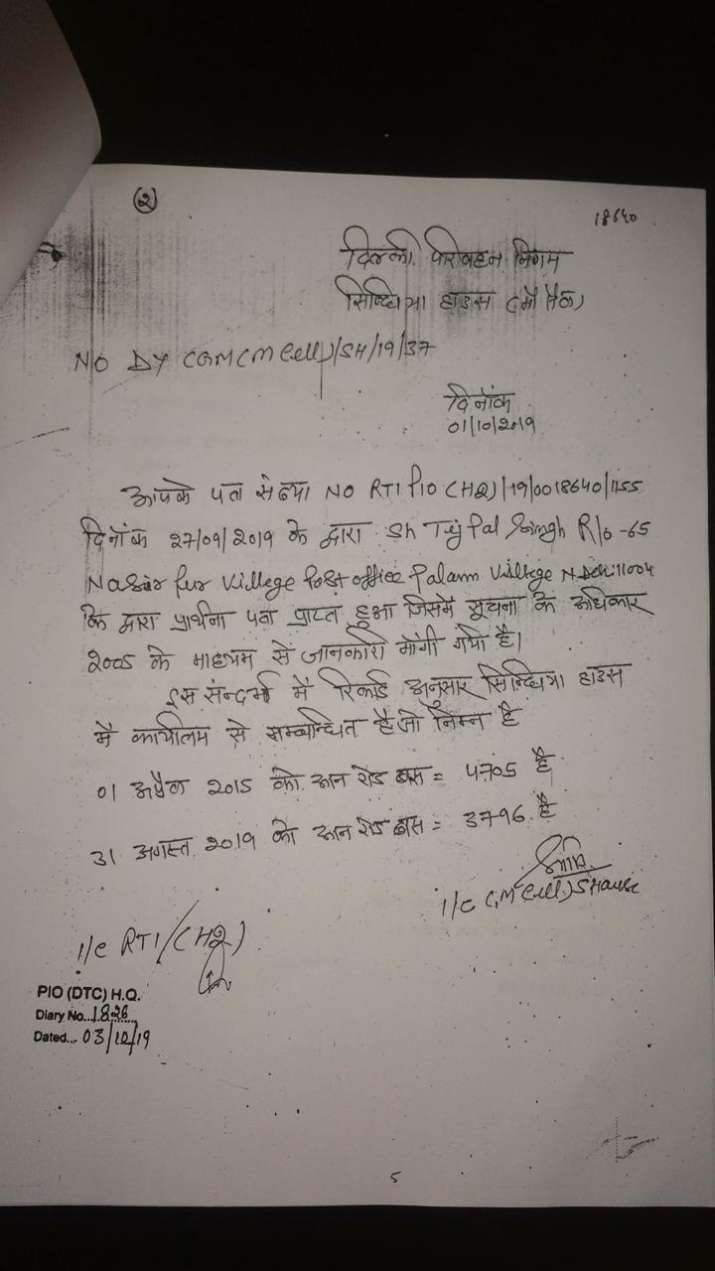 (2)
18640
दिल्ली परिवहन निगम
सिन्धिया हाउस (सी० एम० सैल)
N/O DY CGM(M Cell)/SH/19/37
दिनाँक
01/10/2019
आपके पत्र संख्या NO RTI PIO (HQ)/19/0018640/1155
दिनाँक 27/09/2019 के द्वारा Sh Tej Pal Singh R/o -65
Nasir Pur Village Post office Palam Village N.Delhi 11004
के द्वारा प्रार्थना पत्र प्राप्त हुआ जिसमें सूचना के अधिकार
2005 के माध्यम से जानकारी माँगी गयी है।
इस संन्दर्भ में रिकार्ड अनुसार सिन्धिया हाउस
में कार्यालय से सम्बन्धित है जो निम्न है
01 अप्रैल 2015 को आन रोड बस = 4705 है
31 अगस्त 2019 को आन रोड बस = 3796 है
i/c (M Cell) S House
i/c RTI/(HQ)
PIO (DTC) H.Q.
Diary No. 1826
Dated... 03/10/19
5